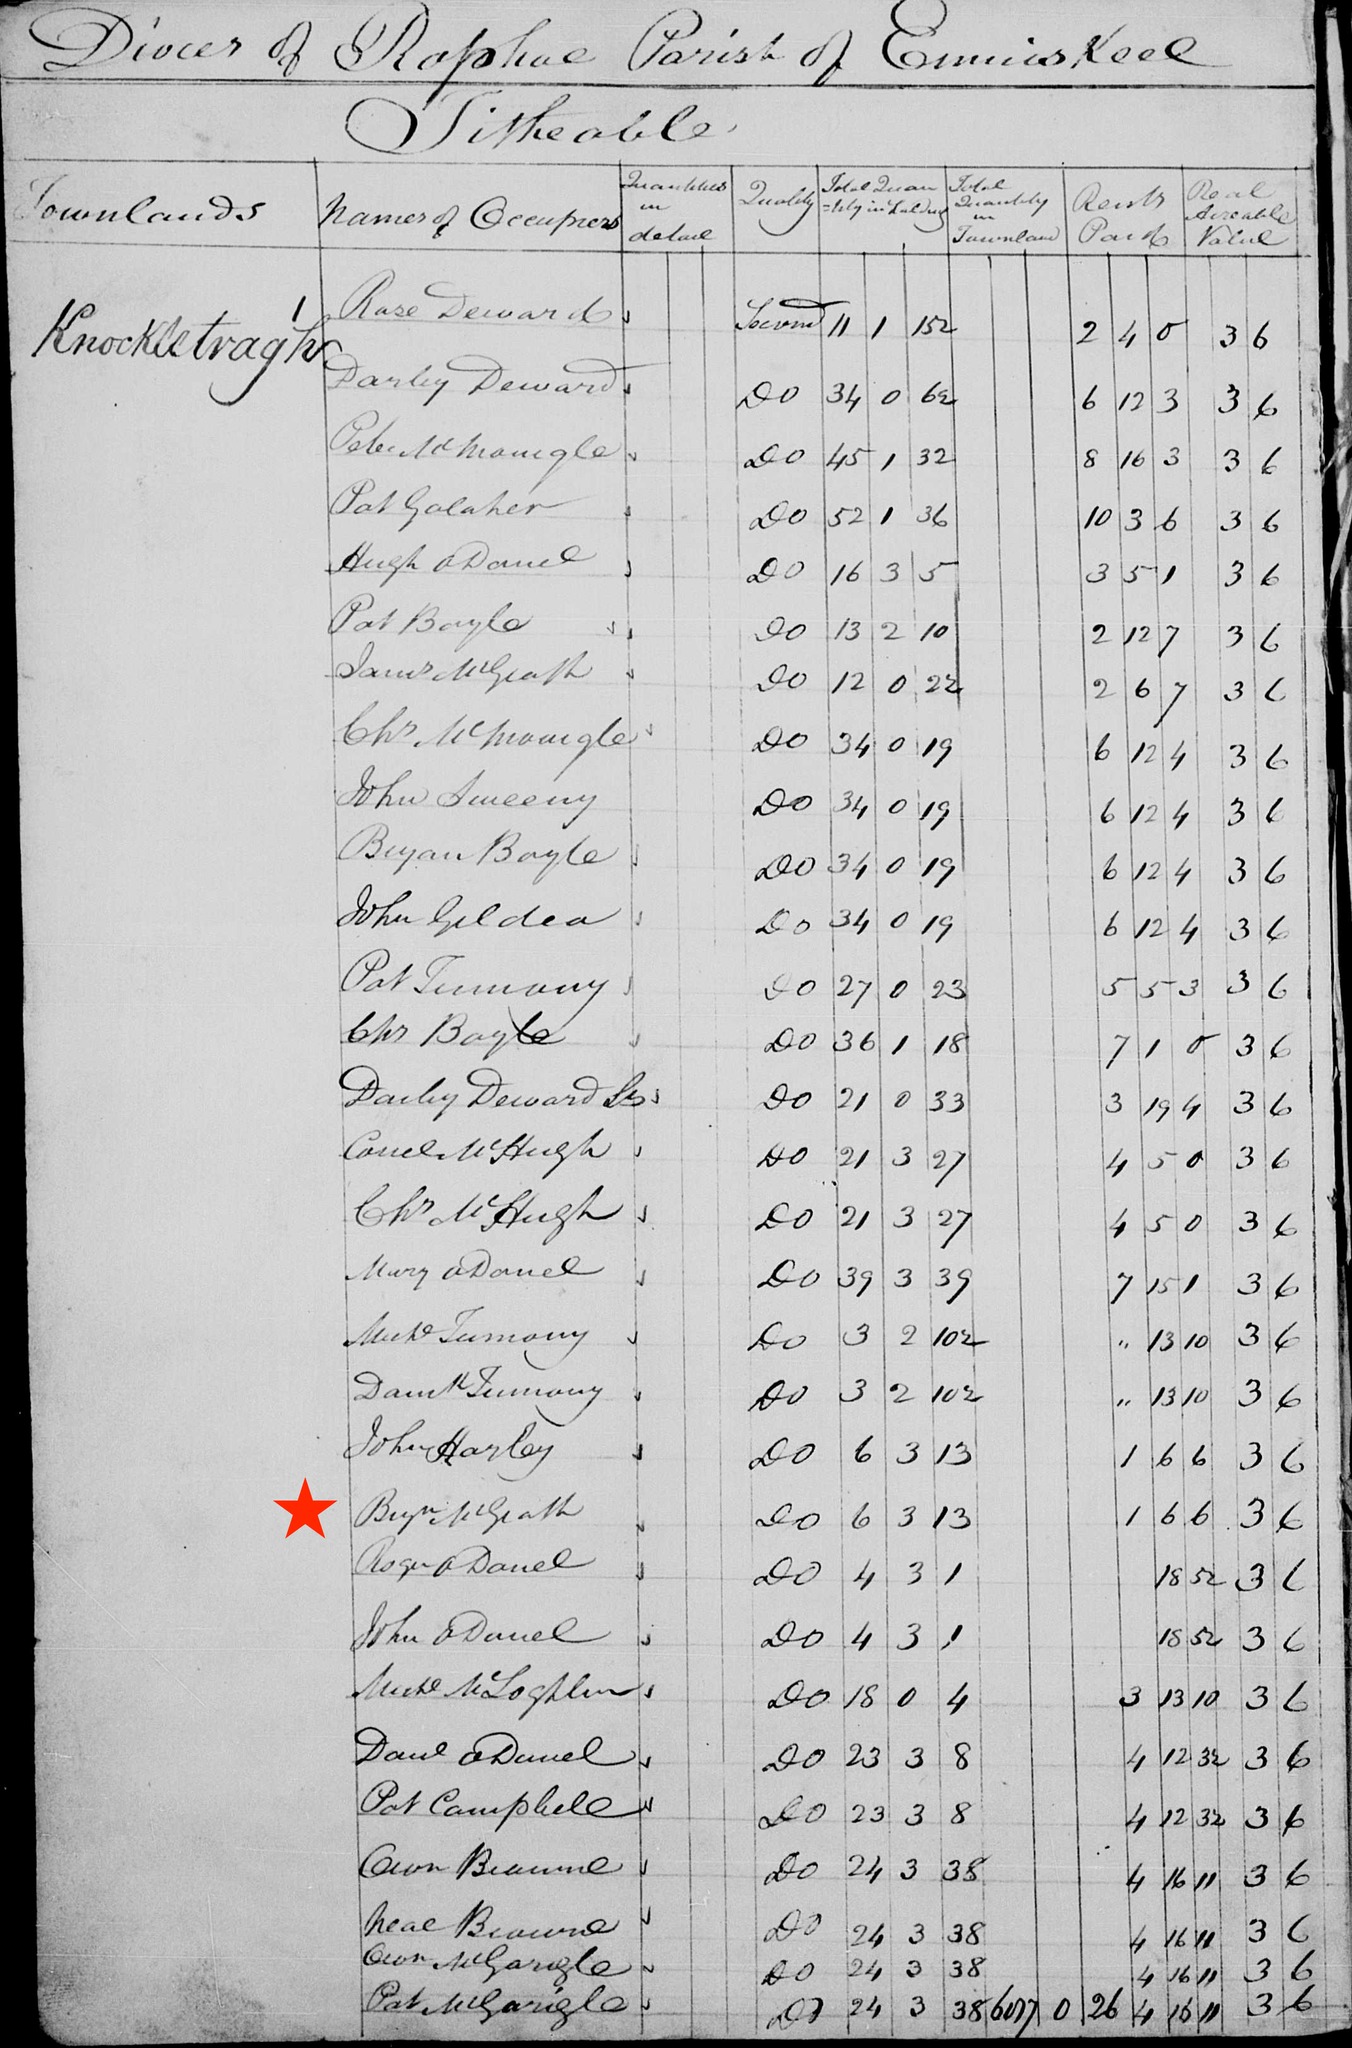 Dioces of Raphoe Parish of Enniskeel
Titheable
Townlands Names of Occupiers Quantities in detail Quality Total Quan=tity in holding Total Quantity in Townland Rents Paid Real Acreable Value
1
Knockletragh
Rose Deward Second 11 1 15½ 2 4 0 3 6
Darby Deward Do 34 0 6½ 6 12 3 3 6
Peter McMonigle Do 45 1 32 8 16 3 3 6
Pat Galaher Do 52 1 36 10 3 6 3 6
Hugh oDonel Do 16 3 5 3 5 1 3 6
Pat Boyle Do 13 2 10 2 12 7 3 6
Jams McGrath Do 12 0 22 2 6 7 3 6
Chs McMonigle Do 34 0 19 6 12 4 3 6
John Sweeny Do 34 0 19 6 12 4 3 6
Bryan Boyle Do 34 0 19 6 12 4 3 6
John Gildea Do 34 0 19 6 12 4 3 6
Pat Tumony Do 27 0 23 5 5 3 3 6
Chs Boyle Do 36 1 18 7 1 0 3 6
Darby Deward Do 21 0 33 3 19 4 3 6
Conel McHugh Do 21 3 27 4 5 0 3 6
Chs McHugh Do 21 3 27 4 5 0 3 6
Mary oDonel Do 39 3 39 7 15 1 3 6
Michl Tumony Do 3 2 10½ " 13 10 3 6
Tumony Do 3 2 10½ " 13 10 3 6
John Harley Do 6 3 13 1 6 6 3 6
Bryn McGrath Do 6 3 13 1 6 6 3 6
Roger oDonel Do 4 3 1 18 5½ 3 6
John oDonel Do 4 3 1 18 5½ 3 6
Michl McLoghlin Do 18 0 4 3 13 10 3 6
Danl oDonel Do 23 3 8 4 12 3½ 3 6
Pat Campbell Do 23 3 8 4 12 3½ 3 6
Owen Browne Do 24 3 38 4 16 11 3 6
Neal Browne Do 24 3 38 4 16 11 3 6
Owen McGarigle Do 24 3 38 4 16 11 3 6
Pat McGarigle Do 24 3 38 0 26 4 16 11 3 6